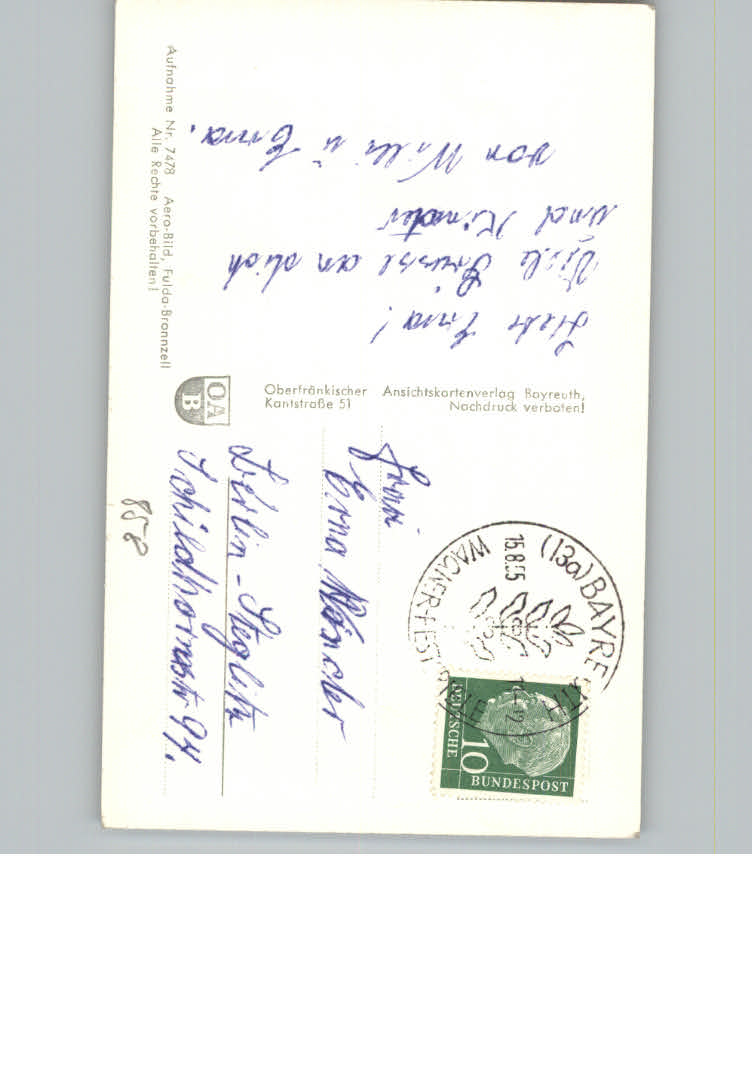 Liebe Erna!
Viele Grüsse an dich
und Kinder
von Willi u Erna.
Aufnahme Nr. 7478 Aero-Bild, Fulda-Bronnzell
Alle Rechte vorbehalten!
OA
B
Oberfränkischer Ansichtskartenverlag Bayreuth,
Kantstraße 51 Nachdruck verboten!
Frau
Erna
Berlin-Steglitz
Schildhornstr 94.
858
(13a) BAYREUTH
15.8.55
WAGNER-FESTSPIELE
DEUTSCHE
BUNDESPOST
10